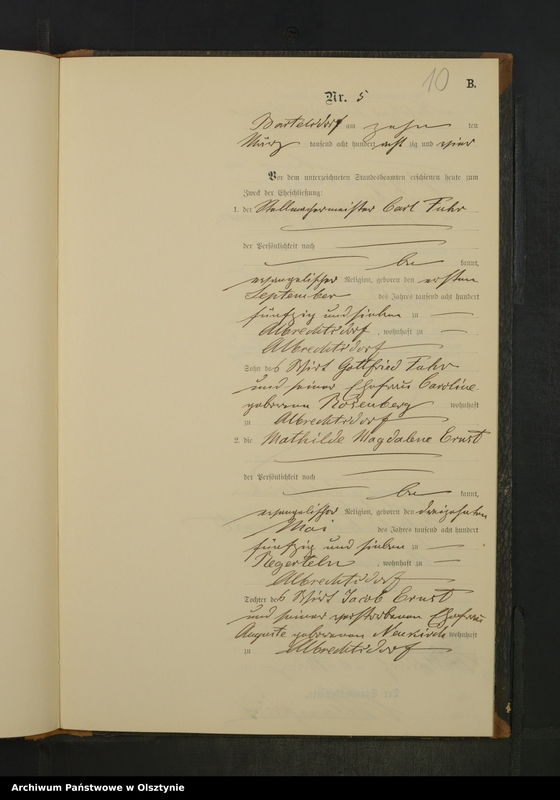 10 B.
Nr. 5
Bartelsdorf am zehn ten
März tausend acht hundert acht zig und vier
Vor dem unterzeichneten Standesbeamten erschienen heute zum
Zweck der Eheschließung:
1. der Stellmachermeister Carl Fuhr
der Persönlichkeit nach
be kannt,
evangelischer Religion, geboren den ersten
September des Jahres tausend acht hundert
fünfzig und sieben zu
Albrechtsdorf, wohnhaft zu
Albrechtsdorf
Sohn des Wirt Gottfried Fuhr
und seiner Ehefrau Caroline
geborenen Rosenberg wohnhaft
zu Albrechtsdorf
2. die Mathilde Magdalene Ernst
der Persönlichkeit nach
be kannt,
evangelischer Religion, geboren den dreizehnten
Mai des Jahres tausend acht hundert
fünfzig und sieben zu
Regerteln, wohnhaft zu
Albrechtsdorf
Tochter des Wirt Jacob Ernst
und seiner verstorbenen Ehefrau
Auguste geborenen Neukirch wohnhaft
zu Albrechtsdorf
Archiwum Państwowe w Olsztynie